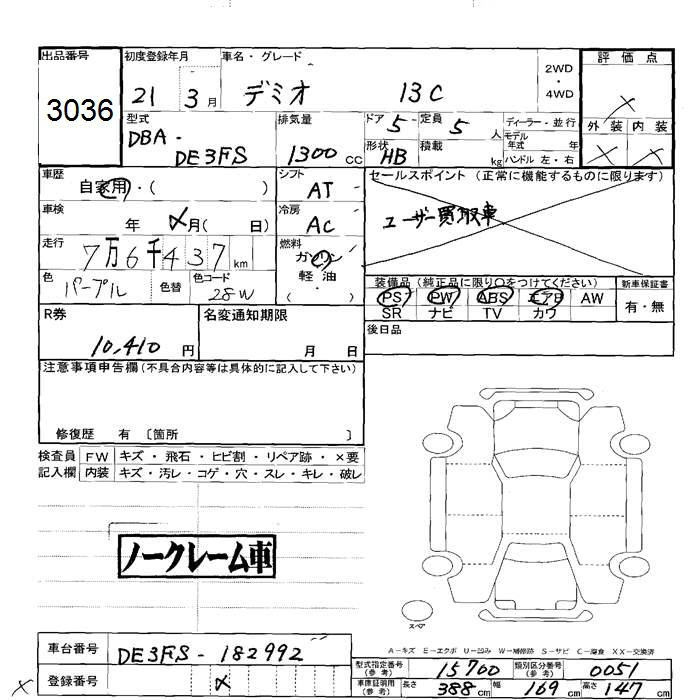 出品番号 初度登録年月 車名・グレード 評価点
3036 21 3月 デミオ 13C 2WD・4WD ×
型式 排気量 ドア 5 定員 5人 ディーラー・並行 外装 内装
DBA-DE3FS 1300cc 形状 HB 積載 kg モデル年式 年 ハンドル 左・右 × ×
車歴 自家用・( ) シフト AT セールスポイント (正常に機能するものに限ります)
車検 年 メ月( 日) 冷房 AC ユーザー買取車
走行 7万6千437km 燃料 ガソリン 軽油 ( )
色 パープル 色替 色コード 28W
装備品(純正品に限り○をつけてください) 新車保証書
PS PW ABS エアB AW 有・無
SR ナビ TV カワ
R券 10,410円 名変通知期限 月 日 後日品
注意事項申告欄(不具合内容等は具体的に記入して下さい)
修復歴 有 〔箇所 〕
検査員 FW キズ・飛石・ヒビ割・リペア跡・×要
記入欄 内装 キズ・汚レ・コゲ・穴・スレ・キレ・破レ
ノークレーム車
スペア
A-キズ E-エクボ U-凹み W-補修跡 S-サビ C-腐食 XX-交換済
車台番号 DE3FS-182992
型式指定番号(参考) 15700 類別区分番号(参考) 0051
× 登録番号 メ
車庫証明用(参考) 長さ 388cm 幅 169cm 高さ 147cm